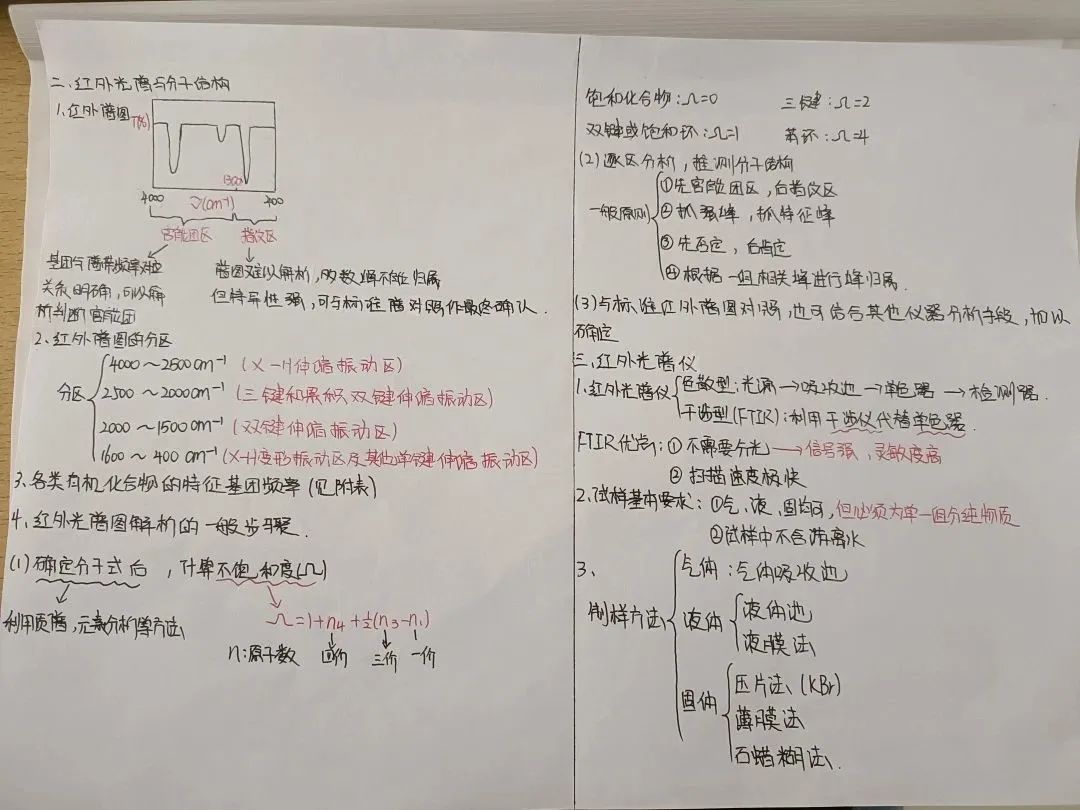 二、红外光谱与分子结构
1、红外谱图
T(%)
1300
4000 ν(cm⁻¹) 400
官能团区 指纹区
基团与谱带频率对应
关系明确,可以解
析判断官能团
谱图难以解析,多数峰不能归属
但特异性强,可与标准谱对照作最终确认.
2、红外谱图的分区
分区
4000~2500cm⁻¹(X-H伸缩振动区)
2500~2000cm⁻¹(三键和累积双键伸缩振动区)
2000~1500cm⁻¹(双键伸缩振动区)
1600~400cm⁻¹(X-H变形振动区及其他单键伸缩振动区)
3、各类有机化合物的特征基团频率(见附表)
4、红外光谱图解析的一般步骤.
(1)确定分子式后,计算不饱和度(Ω)
利用质谱,元素分析等方法
Ω=1+n₄+½(n₃-n₁)
n:原子数 四价 三价 一价
饱和化合物:Ω=0 三键:Ω=2
双键或饱和环:Ω=1 苯环:Ω=4
(2)逐区分析,推测分子结构
一般原则
①先官能团区,后指纹区
②抓强峰,抓特征峰
③先否定,后肯定
④根据一组相关峰进行峰归属.
(3)与标准红外谱图对照,也可结合其他仪器分析手段,加以
确定
三、红外光谱仪
1.红外光谱仪
色散型:光源→吸收池→单色器→检测器.
干涉型(FTIR):利用干涉仪代替单色器.
FTIR优点:①不需要分光→信号强,灵敏度高
②扫描速度极快
2、试样基本要求:①气、液、固均可,但必须为单一组分纯物质
②试样中不含游离水
3、
制样方法
气体:气体吸收池
液体
液体池
液膜法
固体
压片法(KBr)
薄膜法
石蜡糊法.